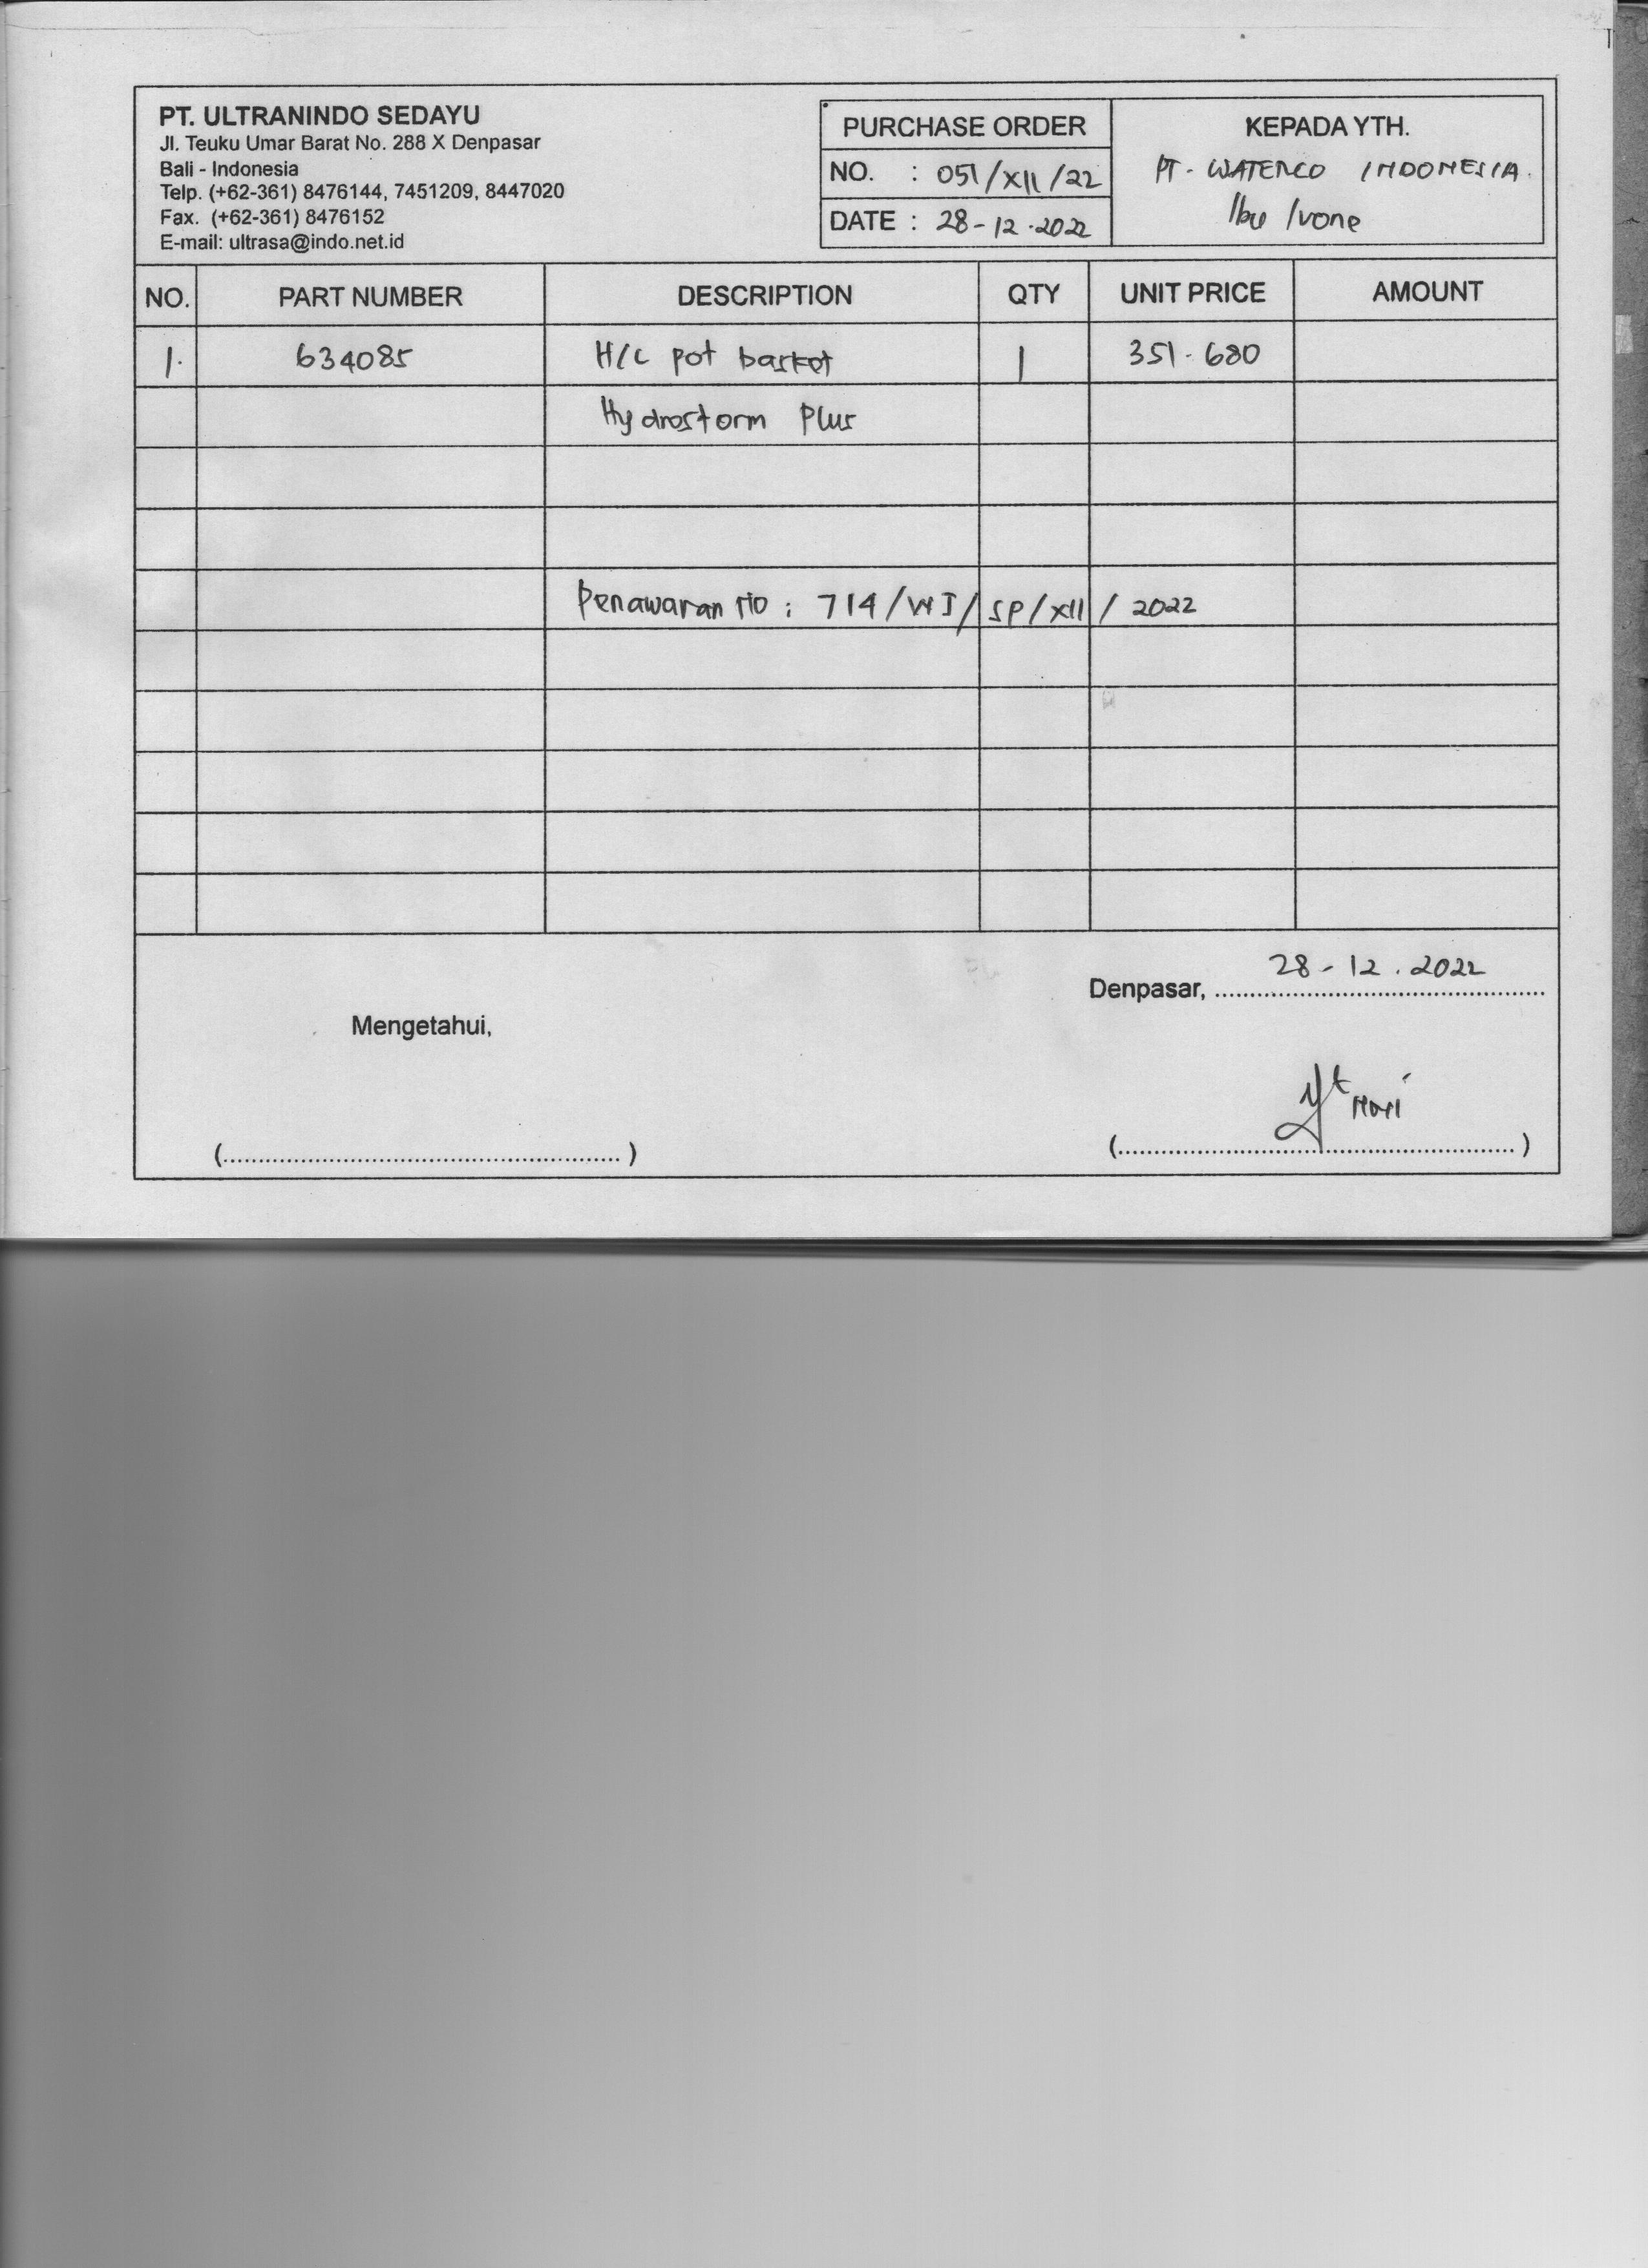 PT. ULTRANINDO SEDAYU
Jl. Teuku Umar Barat No. 288 X Denpasar
Bali - Indonesia
Telp. (+62-361) 8476144, 7451209, 8447020
Fax. (+62-361) 8476152
E-mail: ultrasa@indo.net.id
PURCHASE ORDER
NO. : 051/XII/22
DATE : 28-12-2022
KEPADA YTH.
PT. WATERCO INDONESIA.
Ibu Ivone
NO. PART NUMBER DESCRIPTION QTY UNIT PRICE AMOUNT
1. 634085 H/C pot basket 1 351.680
Hydrostorm Plus
Penawaran no : 714/WI/SP/XII/2022
Denpasar, 28-12.2022
Mengetahui,
(........................................................)
(........................................................)